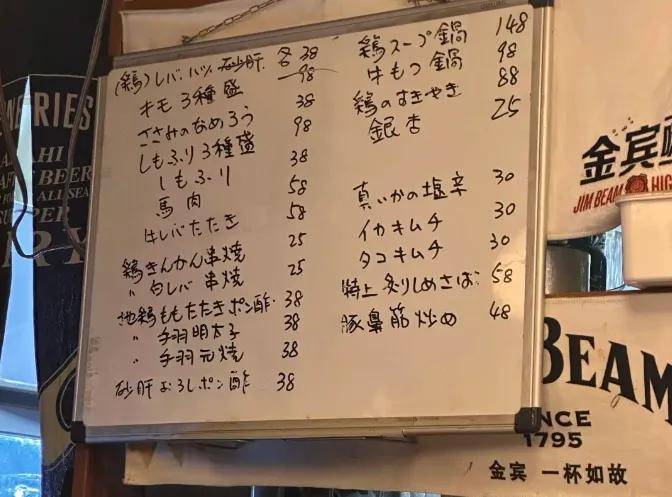 (鶏)レバ、ハツ、砂肝. 各38
キモ3種盛 98
ささみのなめろう 38
しもふり3種盛 98
しもふり 38
馬肉 58
はしバたたき 58
鶏きんかん串焼 25
〃 白レバ串焼 25
地鶏ももたたきポン酢. 38
〃 手羽明太子 38
〃 手羽元焼 38
砂肝おろしポン酢 38
鶏スープ鍋 148
牛もつ鍋 98
鶏のすきやき 88
銀杏 25
真いかの塩辛 30
イカキムチ 30
タコキムチ 30
特上炙りしめさば 58
豚鼻筋炒め 48
ERIES
AHI
BEER
ALL SEA
PER
RY
金宾
JIM BEAM HIG
BEAM
NCE
1795
金宾 一杯如故